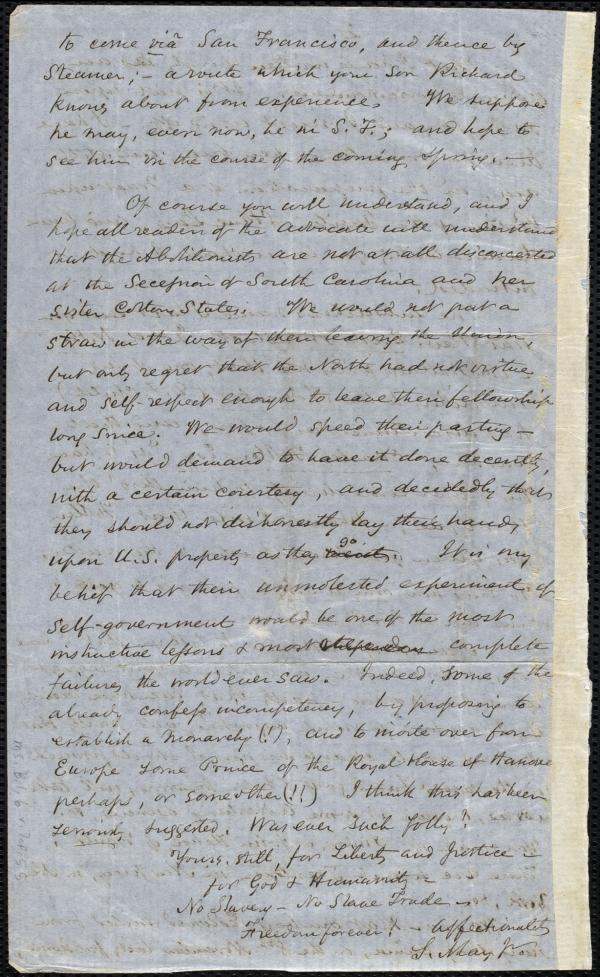 to come viâ San Francisco, and thence by
Steamer; – a route which your Son Richard
knows about from experience. We suppose
he may, even now, be in S. F.; and hope to
see him in the course of the coming Spring. –
Of course you will understand, and I
hope all readers of the Advocate will understand
that the Abolitionists are not at all disconcerted
at the Secession of South Carolina and her
Sister Cotton States. We would not put a
straw in the way of their leaving the Union,
but only regret that the North had not virtue
and self-respect enough to leave their fellowship
long since. We would speed their parting –
but would demand to have it done decently,
with a certain courtesy, and decidedly that
they should not dishonestly lay their hands
upon U.S. property as they go. It is my
belief that their unmolested experiment of
self-government would be one of the most
instructive lessons & most complete
failures the world ever saw. Indeed, some of them
already confess incompetency, by proposing to
establish a Monarchy (!), and to invite over from
Europe some Prince of the Royal House of Hanover
perhaps, or some other (!!) I think this has been
seriously suggested. Was ever such folly!
Yours, still, for Liberty and Justice –
for God & Humanity –
No Slavery – No Slave Trade –
Freedom forever! – affectionately
S. May Jr.
MS. B.1.6 v.